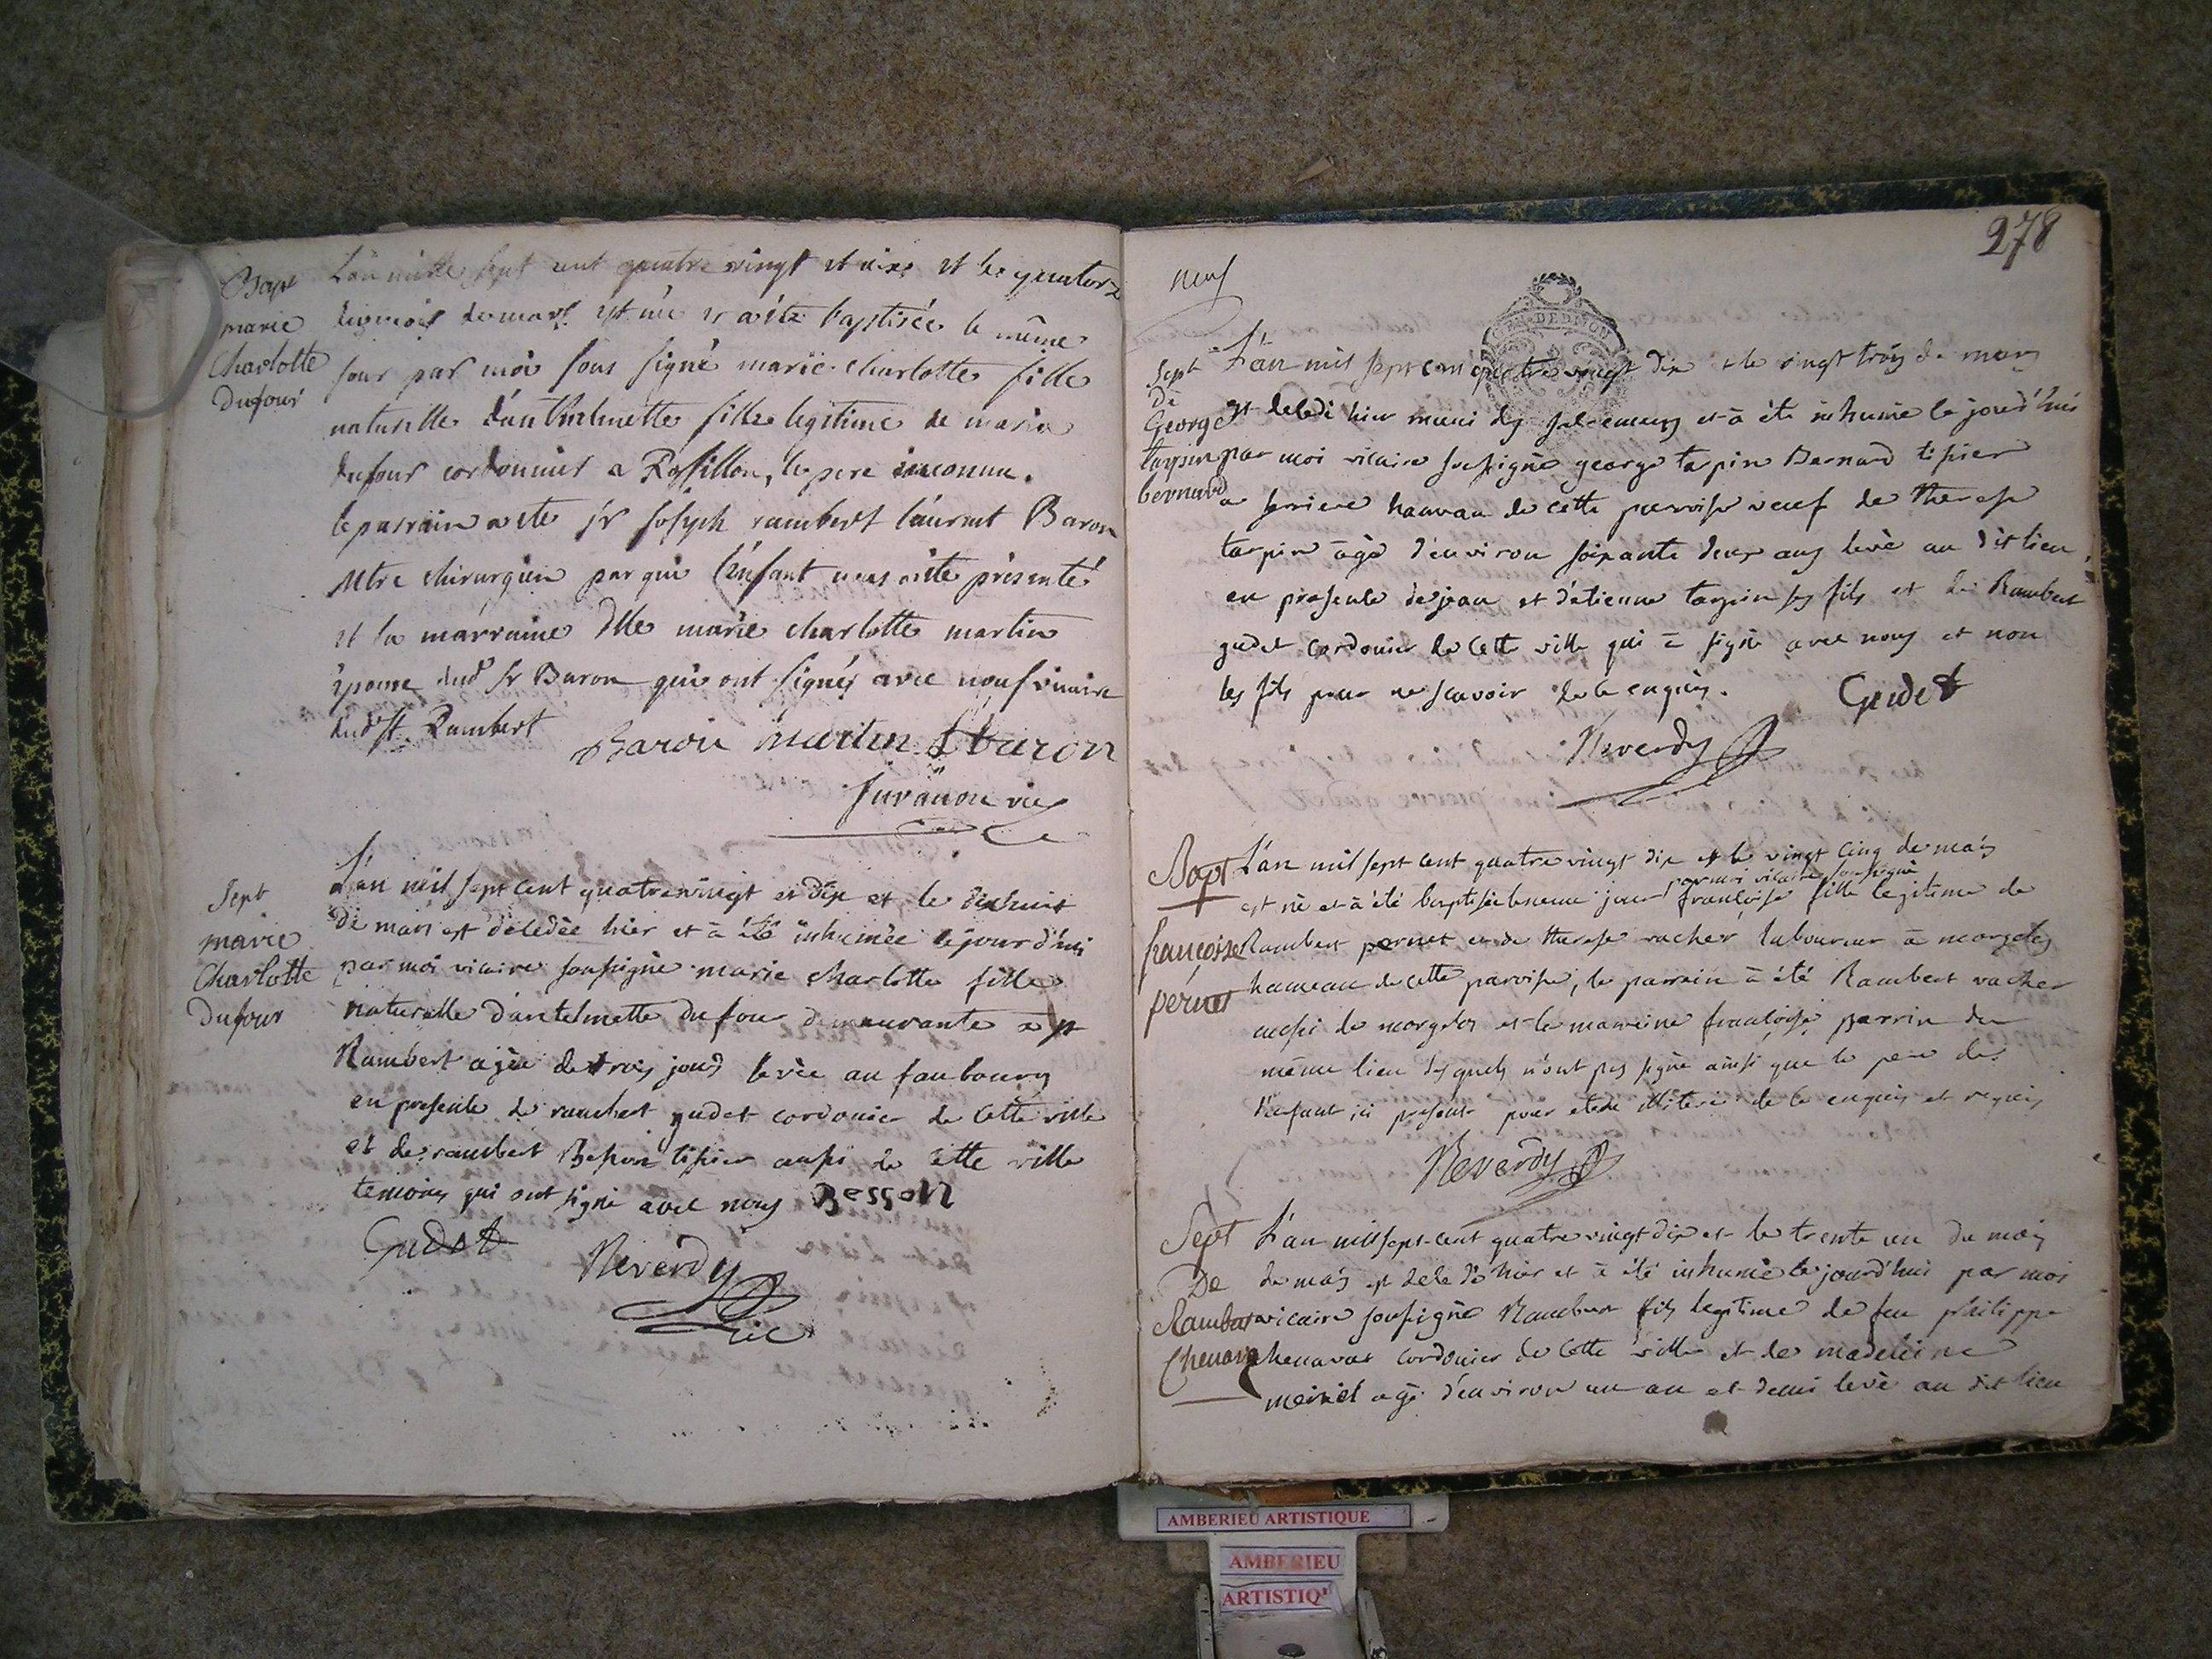 Bapt
marie
Charlotte
Dufour
L'an mille sept cent quatre vingt et dix et le quatorze
du mois de mars est née et a été baptisée le même
jour par moi sous signé marie charlotte fille
naturelle d'anthelmette fille legitime de marin
dufour cordonnier a Rossillon, le pere inconnu.
le parrain a ete sr joseph rambert laurent Baron
Mtre chirurgien par qui l'enfant nous a ete presenté
et la marraine Dlle marie charlotte martin
epouse dud sr Baron qui ont signés avec nous vicaire
dud st. Rambert
Baron martin f baron
Juvanon vic
Sept
marie
Charlotte
Dufour
L'an mil sept cent quatre vingt et dix et le dixhuit
de mars est décédée hier et à été inhumée cejourd'hui
par moi vicaire soussigné marie charlotte fille
naturelle d'antelmette dufour demeurante a st
Rambert agée de trois jours levée au faubourg
en presence de rambert gudet cordonier de cette ville
et de rambert Besson tissier aussi de cette ville
temoins qui ont signé avec nous Besson
Gudet
Reverdy
vic
278
neuf
GEN. DE DIJON
Sept
de
George
tarpin
bernard
L'an mil sept cent quatre vingt dix et le vingt trois de mars
est decedé hier muni des sacremens et à été inhumé le jourd'hui
par moi vicaire soussigné george tarpin Bernard tissier
a serriere hameau de cette parroisse veuf de therese
tarpin âgé d'environ soixante deux ans levé au dit lieu,
en presence de jean et d'etienne tarpin ses fils et de Rambert
gudet cordonier de cette ville qui à signé avec nous et non
les fils pour ne scavoir de ce enquis.
Gudet
Reverdy
Bapt
françoise
pernet
L'an mil sept cent quatre vingt dix et le vingt cinq de mars
par moi vicaire soussigné
est né et à été baptisée le meme jour françoise fille legitime de
Rambert pernet et de therese vacher laboureur à morgelas
hameau de cette paroisse, le parrain à été Rambert vacher
aussi de morgelas et la marreine françoise perrin du
même lieu lesquels n'ont pas signé ainsi que le pere de
l'enfant ici present pour etre illiteré de ce enquis et requis
Reverdy
Sept
De
Rambert
Chenavas
L'an mil sept cent quatre vingt dix et le trente un du mois
de mars est decedé hier et à été inhumé le jourd'hui par moi
vicaire soussigné Rambert fils legitime de feu philippe
chenavas cordonier de cette ville et de madeleine
meiniel agé d'environ un an et demi levé au dit lieu
AMBERIEU ARTISTIQUE
AMBERIEU
ARTISTIQ'